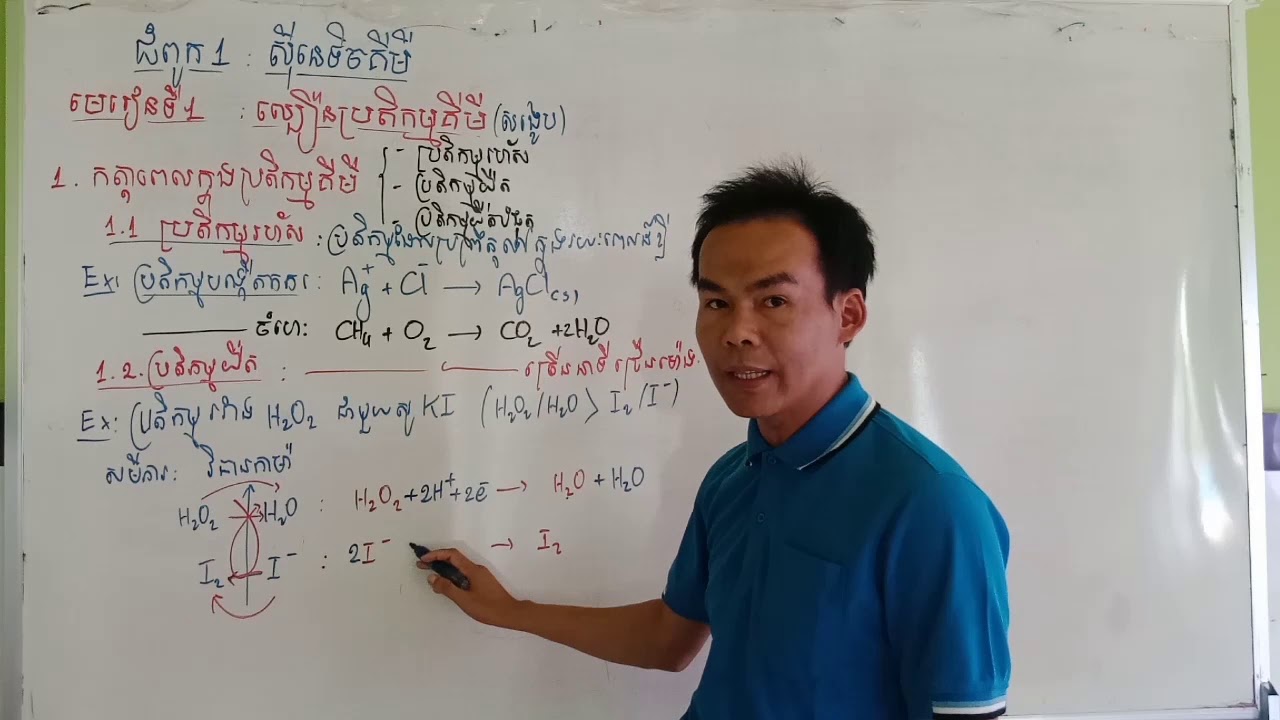 ជំពូក 1 : ស៊ីនេទិចគីមី
មេរៀនទី1 : ល្បឿនប្រតិកម្មគីមី (សង្ខេប)
1. កត្តាពេលក្នុងប្រតិកម្មគីមី
- ប្រតិកម្មរហ័ស
- ប្រតិកម្មយឺត
ប្រតិកម្មយឺតបំផុត
1.1 ប្រតិកម្មរហ័ស : ប្រតិកម្មដែលប្រព្រឹត្តទៅក្នុងរយៈពេលដ៏ខ្លី
Ex: ប្រតិកម្មបង្កើតកករ: Ag⁺ + Cl⁻ → AgCl(s)
ចំហេះ CH₄ + O₂ → CO₂ + 2H₂O
1.2. ប្រតិកម្មយឺត : ច្រើននាទី ច្រើនម៉ោង
Ex: ប្រតិកម្ម រវាង H₂O₂ ជាមួយសូ KI (H₂O₂/H₂O > I₂/I⁻)
សមីការ: វិធានកាម៉ា
H₂O₂ H₂O : H₂O₂ + 2H⁺ + 2e⁻ → H₂O + H₂O
I₂ I⁻ : 2I⁻ → I₂